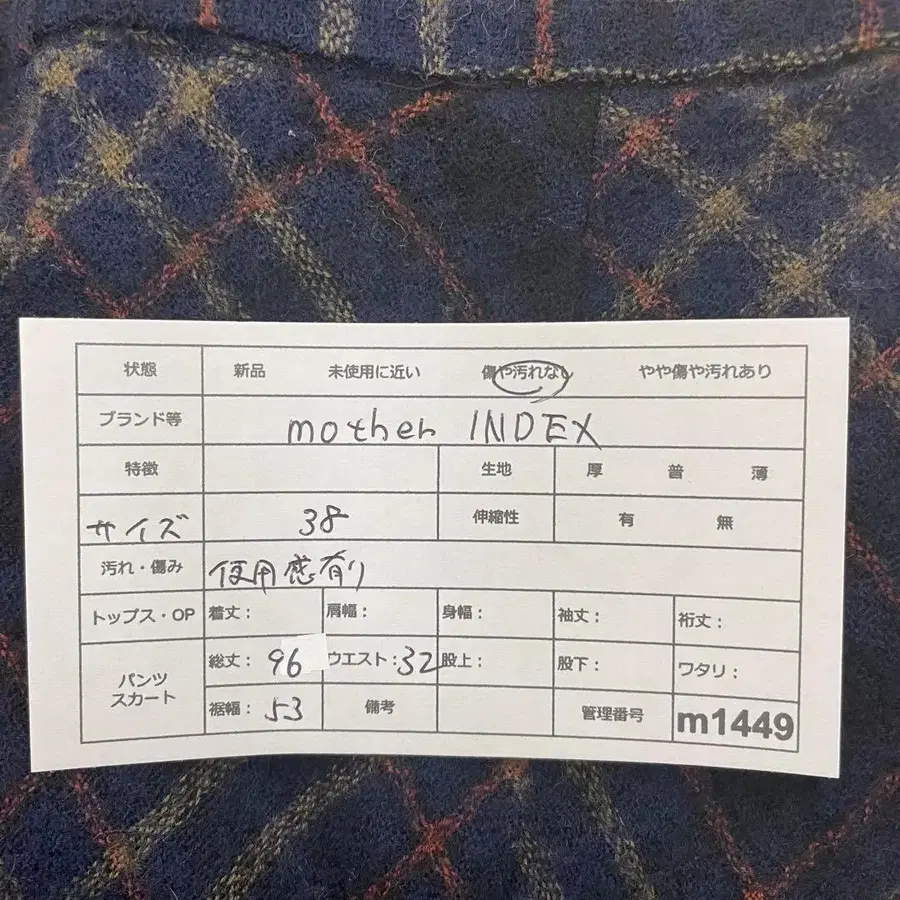 状態 新品 未使用に近い 傷や汚れなし やや傷や汚れあり
ブランド等 mother INDEX
特徴 生地 厚 普 薄
サイズ 38 伸縮性 有 無
汚れ・傷み 使用感有り
トップス・OP 着丈: 肩幅: 身幅: 袖丈: 裄丈:
パンツ スカート 総丈: 96 ウエスト: 32 股上: 股下: ワタリ:
裾幅: 53 備考 管理番号 m1449